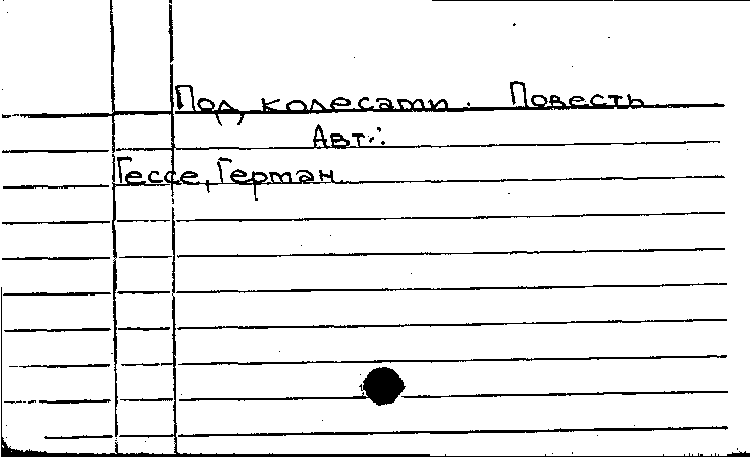 Под колесами. Повесть
Авт.:
Гессе, Герман